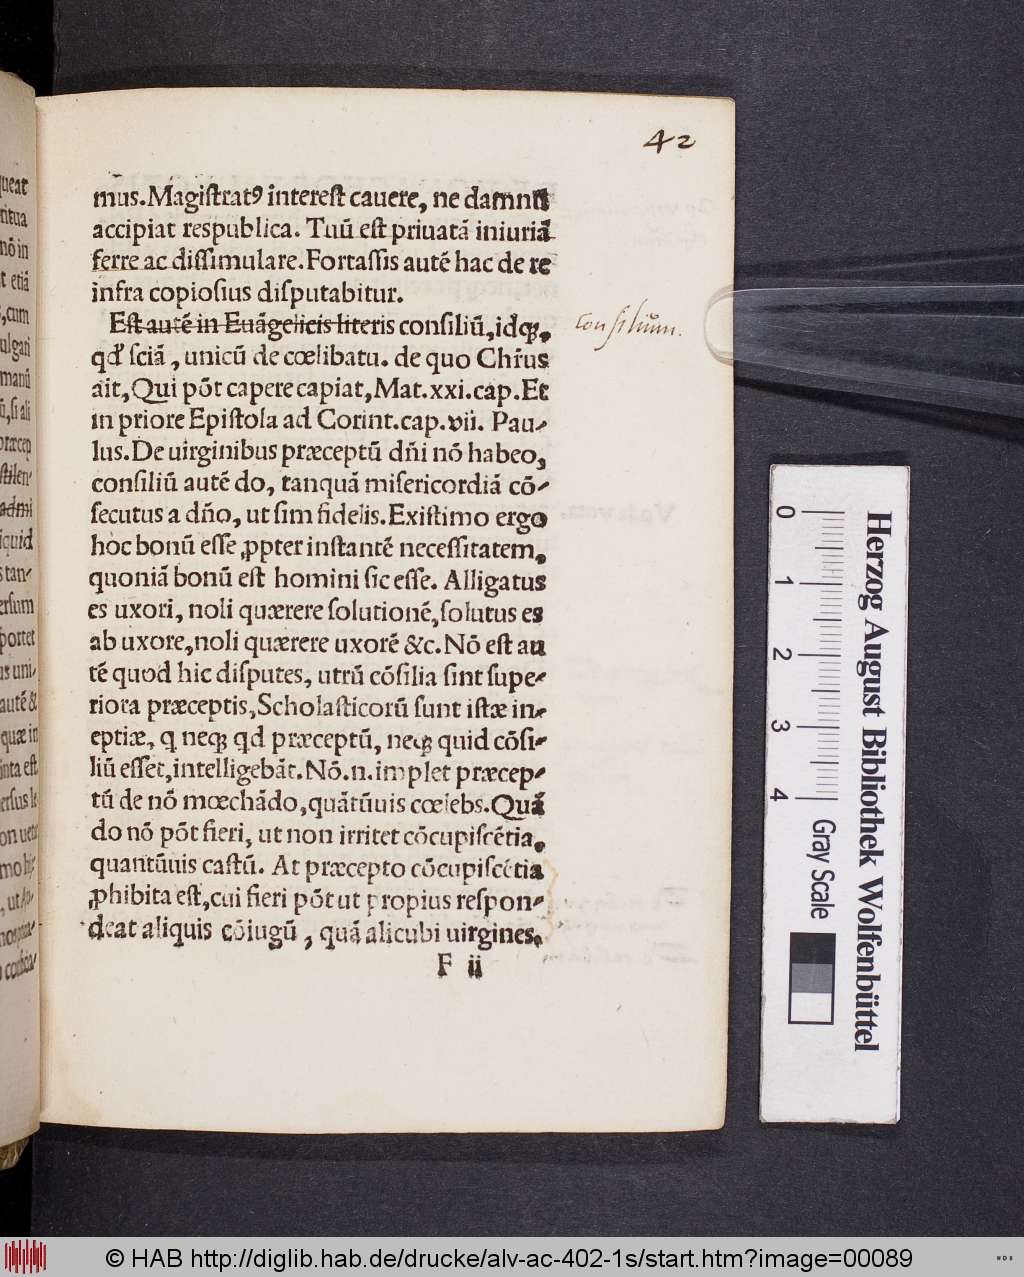 42
mus. Magistratꝯ interest cauere, ne damnū
accipiat respublica. Tuū est priuatā iniuriā
ferre ac dissimulare. Fortassis autē hac de re
infra copiosius disputabitur.
Est autē in Euāgelicis literis consiliū, idq̃,
qd̃ sciā, unicū de cœlibatu. de quo Chr̃us
ait, Qui põt capere capiat, Mat. xxi. cap. Et
in priore Epistola ad Corint. cap. vii. Pau-
lus. De uirginibus præceptū dñi nō habeo,
consiliū autē do, tanquā misericordiā cō-
secutus a dño, ut sim fidelis. Existimo ergo
hoc bonū esse ꝓpter instantē necessitatem,
quoniā bonū est homini sic esse. Alligatus
es uxori, noli quærere solutionē, solutus es
ab uxore, noli quærere uxorē &c. Nō est au
tē quod hic disputes, utrū cōsilia sint supe-
riora præceptis, Scholasticorū sunt istæ in-
eptiæ, q neqꝫ qd præceptū, neqꝫ quid cōsi-
liū esset, intelligebāt. Nō. n. implet præcep-
tū de nō mœchādo, quātūuis cœlebs. Quā
do nō põt fieri, ut non irritet cōcupiscētia,
quantūuis castū. At præcepto cōcupiscētia
ꝓhibita est, cui fieri põt ut propius respon-
deat aliquis cōiugū, quā alicubi uirgines.
F ii
Consilium.
ueat
ritua
nō in
t etiā
, cum
ulgari
manū
ū, si ali
præcep
stilen-
admi
iquid
s tan-
ersum
portet
us uni-
autē &
quæ in
inta est
ersus le
0 1 2 3 4
Gray Scale
Herzog August Bibliothek Wolfenbüttel
© HAB http://diglib.hab.de/drucke/alv-ac-402-1s/start.htm?image=00089